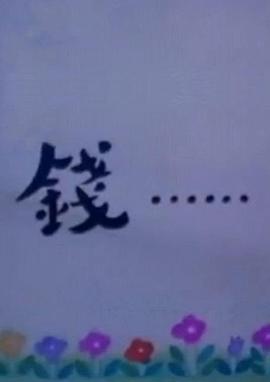 錢……